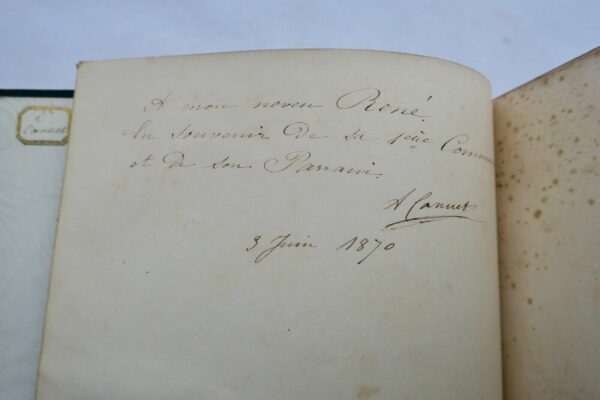 A mon neveu René
En souvenir de sa 1ère Commu
et de son Parrain.
A Canuet
3 Juin 1870
Canuet